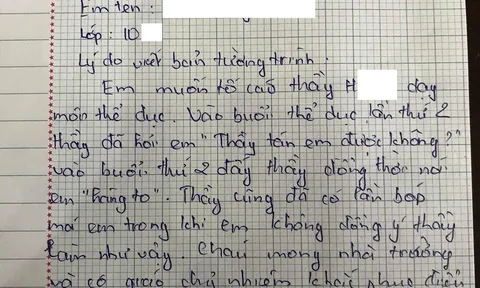 Em tên :
Lớp : 10
Lý do viết bản tường trình :
Em muốn tố cáo thầy H dạy
môn thể dục. Vào buổi thể dục lần thứ 2
thầy đã hỏi em "Thầy tán em được không?"
vào buổi thứ 2 đấy thầy đồng thời nói
em "háng to". Thầy cũng đã có lần bóp
má em trong khi em không đồng ý thầy
làm như vậy. Cháu mong nhà trường
và cô giáo chủ nhiệm khắc phục điều